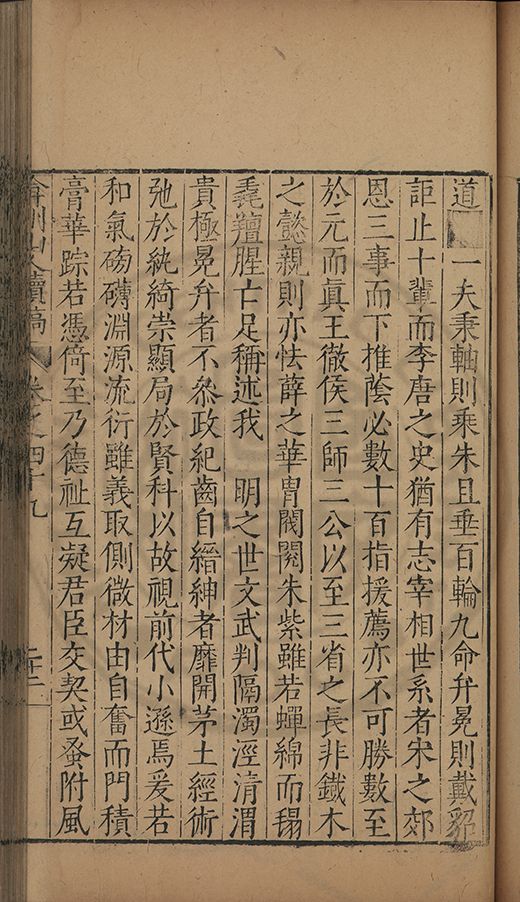 道一夫秉軸則乘朱且垂百輪九命弁冕則戴貂
詎止十輩而李唐之史猶有志宰相世系者宋之郊
恩三事而下推蔭必數十百指援薦亦不可勝數至
於元而眞王徹侯三師三公以至三省之長非鐵木
之懿親則亦怯薛之華冑閥閱朱紫雖若蟬綿而毾
毳羶腥亡足稱述我　明之世文武判隔濁涇清渭
貴極冕弁者不叅政紀齒自縉紳者靡開茅土經術
弛於紈綺崇顯局於賢科以故視前代小遜焉爰若
和氣磅礴淵源流衍雖義取側微材由自奮而門積
膏華踪若憑倚至乃德祉互凝君臣交契或蚤附風
弇州山人續稿　卷之四十九　二十二